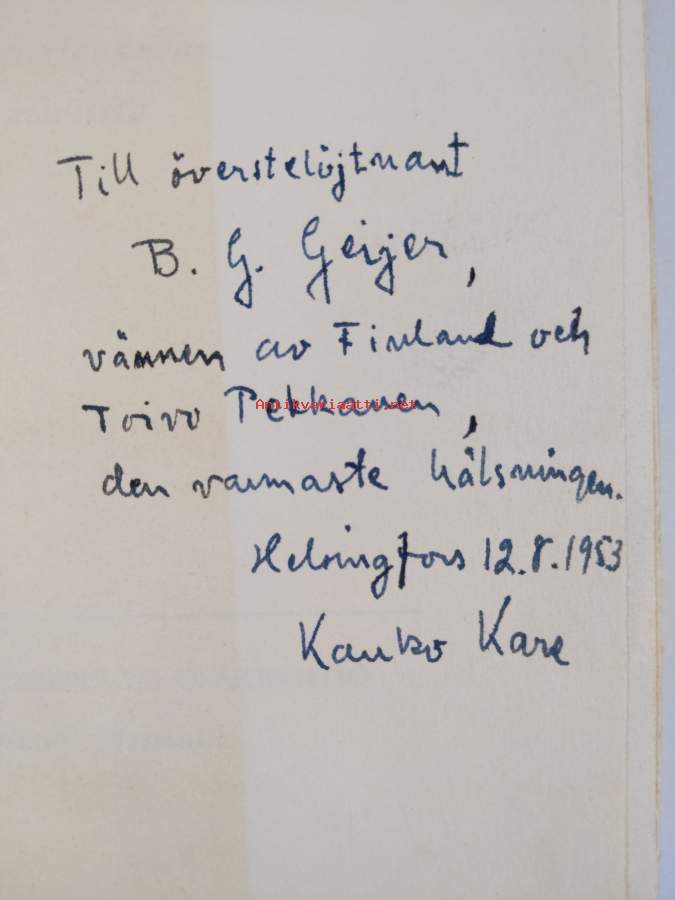 Till överstelöjtnant
B. G. Geijer,
vännen av Finland och
Toivo Pekkanen,
Antikvariaatti.net
den varmaste hälsningen.
Helsingfors 12.8.1953
Kauko Kare